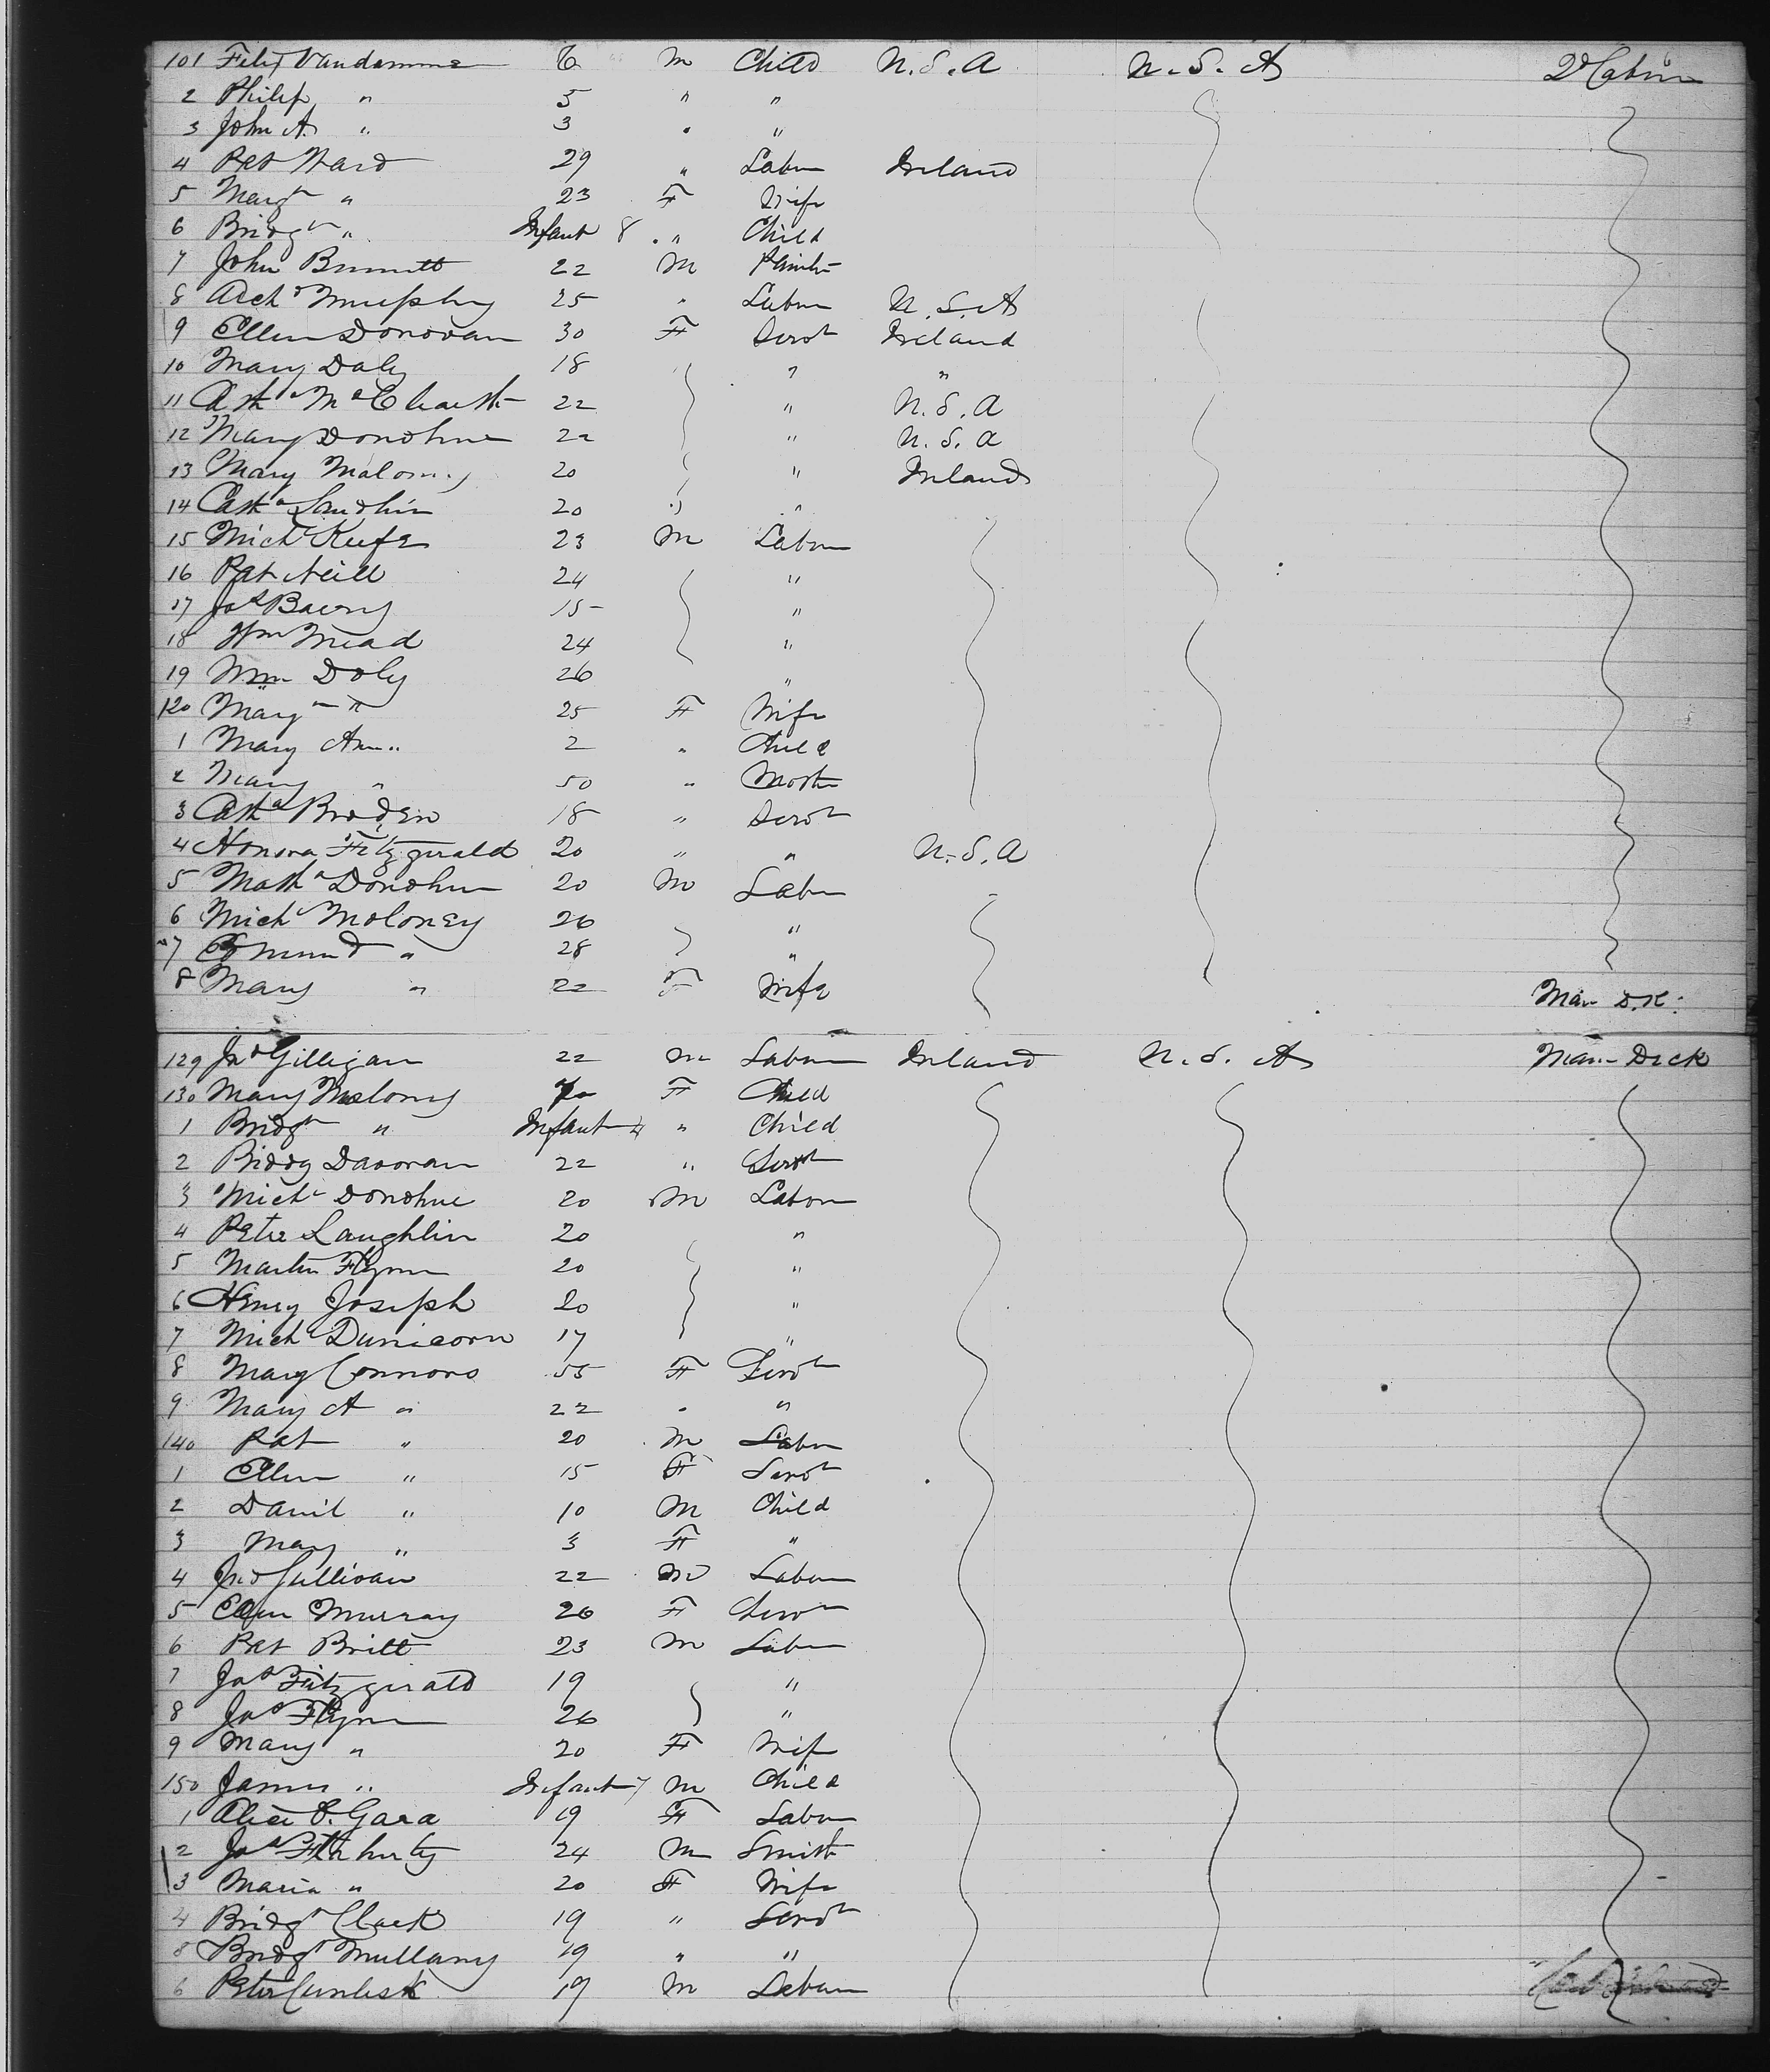 101 Felix Vandamme 6 m Child U.S.A U.S.A 2d Cabin
2 Philip " 5 " "
3 John A. " 3 " "
4 Pat Ward 29 " Labor Ireland
5 Margt " 23 F Wife
6 Bridgt " Infant 8 " Child
7 John Bennett 22 M Painter
8 Archd Murphy 25 " Labor U.S.A
9 Ellen Donovan 30 F Servt Ireland
10 Mary Daly 18 " "
11 Cath 22 " U.S.A
12 Mary Donohue 22 " U.S.A
13 Mary Malony 20 " Ireland
14 Cath 20 " "
15 Michl Keefe 23 M Labor
16 Pat Neill 24 "
17 Jas 15 "
18 Wm Mead 24 "
19 Wm Doly 26 "
120 Margt " 25 F Wife
1 Mary Ann " 2 " Child
2 Mary " 50 " Moth
3 Cath Broden 18 " Servt
4 Honora Fitzgerald 20 " " U.S.A
5 Math Donohue 20 M Labor
6 Michl Moloney 26 "
7 Edmund " 28 "
8 Mary " 22 F Wife Main D.K.
129 Jno Gilligan 22 M Labor Ireland U.S.A Main Deck
130 Mary Molony F Child
1 Bridgt " Infant 4 " Child
2 Biddy Davoran 22 " Servt
3 Michl Donohue 20 M Labor
4 Peter Laughlin 20 "
5 Martin Flynn 20 "
6 Henry Joseph 20 "
7 Michl Dunicorn 17 "
8 Mary Connors 55 F Servt
9 Mary A " 22 " "
140 Pat " 20 M Labor
1 Ellen " 15 F Servt
2 Danil " 10 M Child
3 Mary " 3 F "
4 Jno Sullivan 22 M Labor
5 Ellen Murray 26 F Servt
6 Pat Britt 23 M Labor
7 Jas Fitzgerald 19 "
8 Jas Flynn 26 "
9 Mary " 20 F Wife
150 James " Infant 7 M Child
1 Alice O.Gara 19 F Labor
2 Jas Flaherty 24 M Smith
3 Maria " 20 F Wife
4 Bridgt Clark 19 " Servt
5 Bridgt Mullany 19 " "
6 Peter 19 M Labor